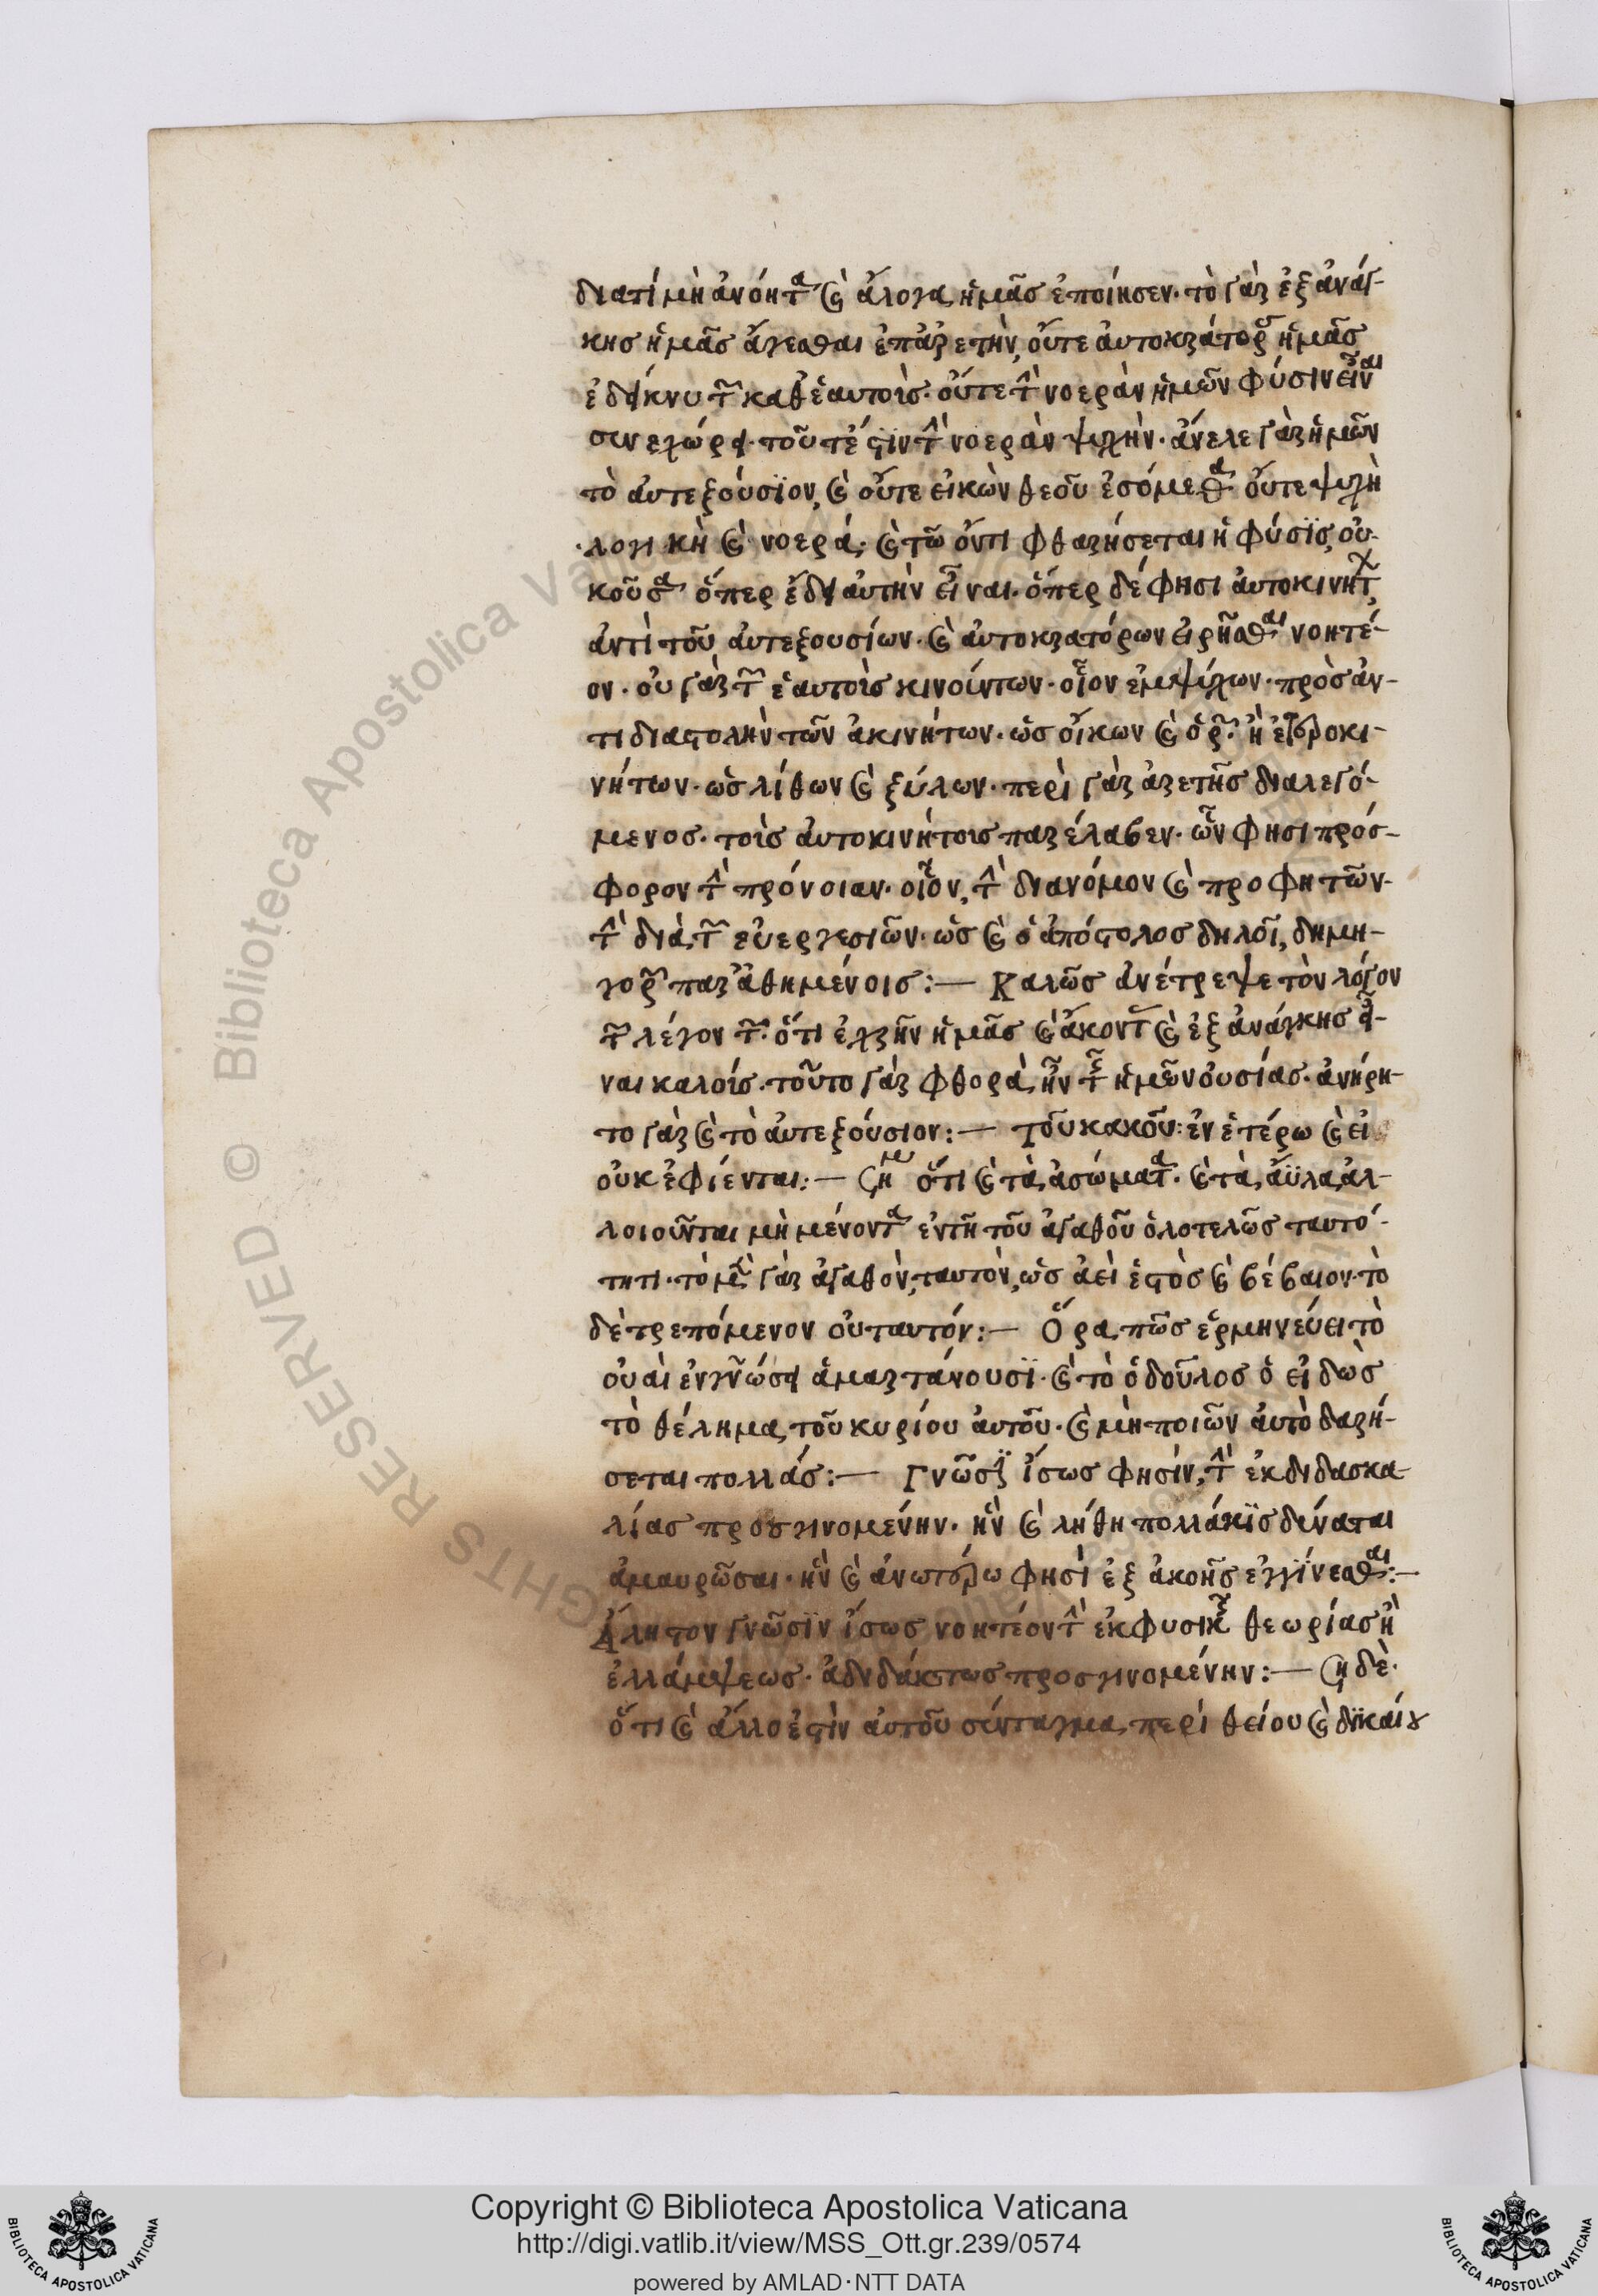 διατί μὴ ἀνόητα καὶ ἄλογα ἡμᾶς ἐποίησεν· τὸ γὰρ ἐξ ἀνάγ-
κης ἡμᾶς ἄγεσθαι ἐπ ἀρετὴν, οὔτε αὐτοκράτορας ἡμᾶς
ἐδείκνυ τῶν καθ ἑαυτοὺς· οὔτε τὴν νοερὰν ἡμῶν φύσιν εἶναι
συνεχώρει· τουτέστιν τὴν νοερὰν ψυχὴν· ἄνελε γὰρ ἡμῶν
τὸ αὐτεξούσϊον, καὶ οὔτε εἰκὼν θεοῦ ἐσόμεθα· οὔτε ψυχὴ
λογικὴ καὶ νοερά· καὶ τῶ ὄντι φθαρήσεται ἡ φύσϊς, οὐ-
κ οὖσα ὅπερ ἔδει αὐτὴν εἶναι· ὅπερ δέ φησι αὐτοκινήτων,
ἀντὶ τοῦ αὐτεξουσίων· καὶ αὐτοκρατόρων εἰρῆσθαι νοητέ-
ον· οὐ γὰρ τῶν ἑαυτοὺς κινούντων· οἷον ἐμψύχων· πρὸς ἀν-
τιδιαστολὴν τῶν ἀκινήτων· ὡς οἴκων καὶ ὀρῶν· ἢ ἑτεροκι-
νήτων· ὡς λίθων καὶ ξύλων· περὶ γὰρ ἀρετῆς διαλεγό-
μενος· τοὺς αὐτοκινήτους παρέλαβεν· ὧν φησι πρόσ-
φορον τὴν πρόνοιαν· οἷον, τὴν διὰ νόμου καὶ προφητῶν·
τὴν διὰ τῶν εὐεργεσιῶν· ὡς καὶ ὁ ἀπόστολος δηλοῖ, δημη-
γορῶν παρ ἀθηναίοις:— Καλῶς ἀνέτρεψε τὸν λόγον
τῶν λεγόντων· ὅτι ἐχρῆν ἡμᾶς καὶ ἄκοντας καὶ ἐξ ἀνάγκης εἶ-
ναι καλούς· τοῦτο γὰρ φθορὰ ἦν τῆς ἡμῶν οὐσίας· ἀνήρη-
το γὰρ καὶ τὸ αὐτεξούσιον:— Τοῦ κακοῦ: ἐν ἑτέρω καὶ εἰ
οὐκ ἐφίενται:— Σημ ὅτι καὶ τὰ ἀσώματα· καὶ τὰ ἄϋλα, ἀλ-
λοιοῦνται μὴ μένοντα ἐν τῆ τοῦ ἀγαθοῦ ὁλοτελῶς ταυτό-
τητι· τὸ μὲν γὰρ ἀγαθὸν, ταυτὸν, ὡς ἀεὶ ἑστὸς καὶ βέβαιον· τὸ
δὲ τρεπόμενον οὐ ταυτόν:— Ὅρα πῶς ἑρμηνεύει τὸ
οὐαὶ ἐν γνώσει ἁμαρτάνουσϊ· καὶ τὸ ὁ δοῦλος ὁ εἰδὼς
τὸ θέλημα τοῦ κυρίου αὐτοῦ· καὶ μὴ ποιῶν αὐτὸ δαρή-
σεται πολλάς:— Γνῶσϊν ἴσως φησὶν, τὴν ἐκ διδασκα-
λίας προσγινομένην· ἣν καὶ λήθη πολλάκϊς δύναται
ἀμαυρῶσαι· ἣν καὶ ἀνωτέρω φησὶ ἐξ ἀκοῆς ἐγγίνεσθαι:—
Ἄληστον γνῶσϊν ἴσως νοητέον τὴν ἐκ φυσικῆς θεωρίας ἢ
ἐλλάμψεως· ἀδιδάκτως προσγινομένην:— Ση δὲ·
ὅτι καὶ ἄλλο ἐστὶν αὐτοῦ σύνταγμα, περὶ θείου καὶ δϊκαίου